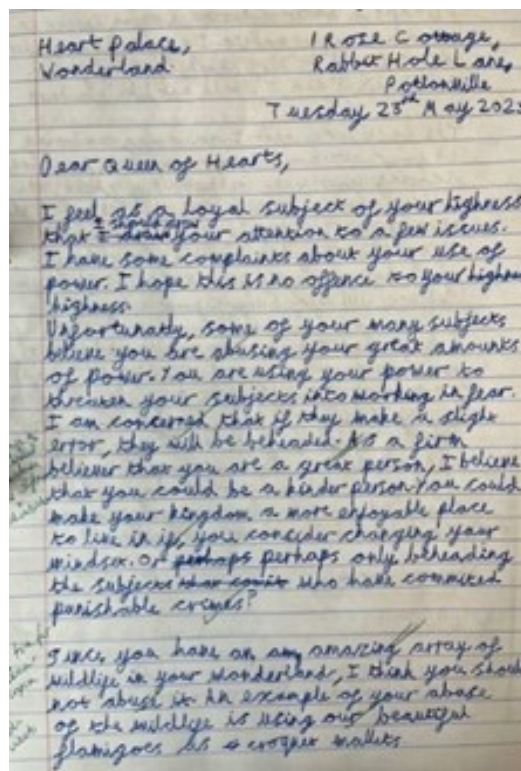 Heart Palace, 1 Rose Cottage,
Wonderland Rabbit Hole Lane,
Potionville
Tuesday 23rd May 202
Dear Queen of Hearts,
I feel as a loyal subject of your highness
that I should draw your attention to a few issues.
I have some complaints about your use of
power. I hope this is no offence to your highne
highness.
Unfortunatly, some of your many subjects
believe you are abusing your great amounts
of power. You are using your power to
threaten your subjects into working in fear.
I am concerned that if they make a slight
error, they will be beheaded. As a firm
believer that you are a great person, I believe
that you could be a kinder person. You could
make your kingdom a more enjoyable place
to live in if, you consider changing your
mindset. Or perhaps perhaps only beheading
the subjects that who have commited
punishable crimes?
Since you have an amazing array of
wildlife in your wonderland, I think you shoul
not abuse it. An example of your abuse
of the wildlife is using our beautiful
flamigoes as croquet mallets